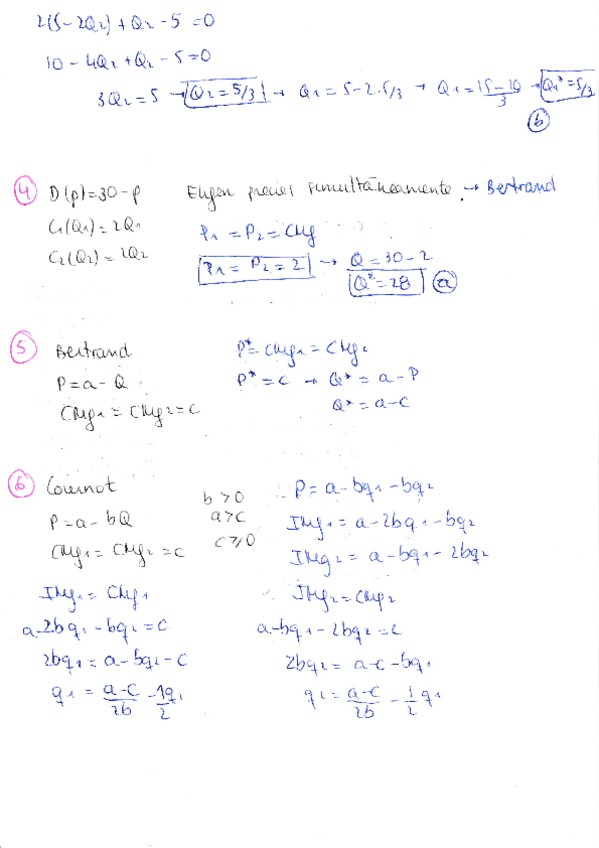 2(5-2Q₂) + Q₂ - 5 = 0
10 - 4Q₂ + Q₂ - 5 = 0
3Q₂ = 5 → Q₂ = 5/3 → Q₁ = 5 - 2.5/3 → Q₁ = (15-10)/3 → Q₁* = 5/3
(b)
(4) D(p) = 30 - p Eligen precios simultáneamente → Bertrand
C₁(Q₁) = 2Q₁ P₁ = P₂ = CMg
C₂(Q₂) = 2Q₂ P₁ = P₂ = 2 → Q = 30 - 2
Q* = 28 (a)
(5) Bertrand P* = CMg₁ = CMg₂
P = a - Q P* = c → Q* = a - P
CMg₁ = CMg₂ = c Q* = a - c
(6) Cournot b > 0 P = a - bq₁ - bq₂
P = a - bQ a > c IMg₁ = a - 2bq₁ - bq₂
CMg₁ = CMg₂ = c c ≥ 0 IMg₂ = a - bq₁ - 2bq₂
IMg₁ = CMg₁ IMg₂ = CMg₂
a - 2bq₁ - bq₂ = c a - bq₁ - 2bq₂ = c
2bq₁ = a - bq₂ - c 2bq₂ = a - c - bq₁
q₁ = (a-c)/2b - 1q₂/2 q₂ = (a-c)/2b - 1/2 q₁